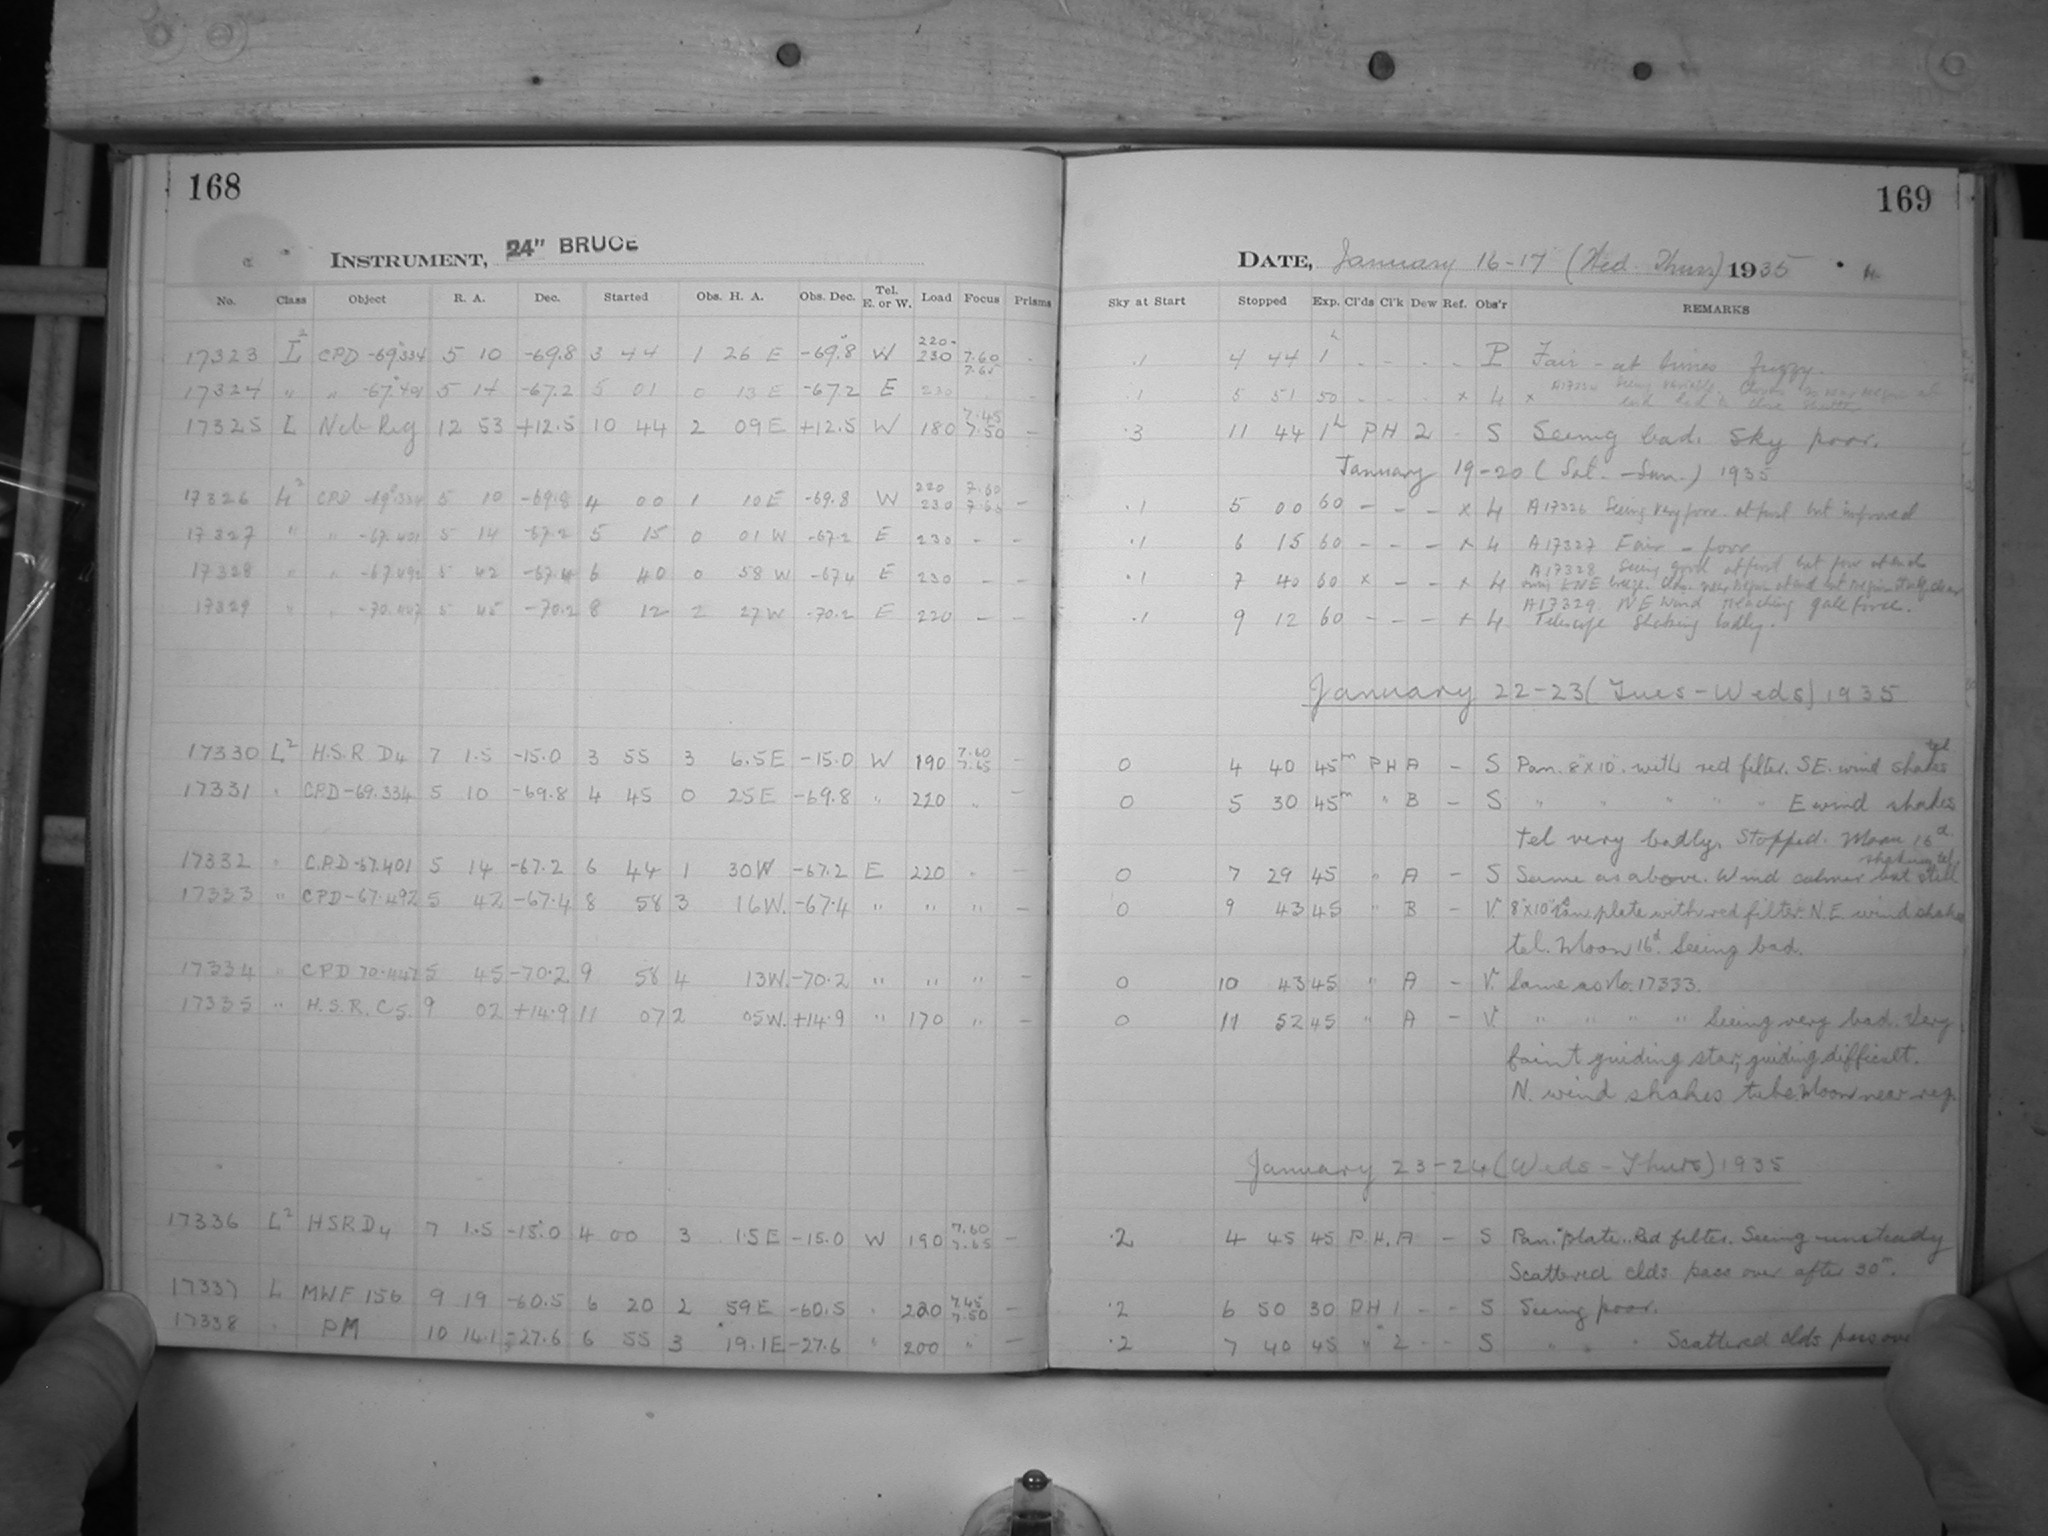 168
INSTRUMENT, 24" BRUCE
No. Class Object R. A. Dec. Started Obs. H. A. Obs. Dec. Tel. E. or W. Load Focus Prisms
17323 L² CPD -69°334 5 10 -69.8 3 44 1 26 E -69.8 W 220-230 7.60 7.65 -
17324 " " -67°401 5 14 -67.2 5 01 0 13 E -67.2 E 220 -
17325 L Neb Reg 12 53 +12.5 10 44 2 09 E +12.5 W 180 7.45 7.50 -
17326 L² CPD -69°334 5 10 -69.8 4 00 1 10 E -69.8 W 220 230 7.60 7.65 -
17327 " " -67.401 5 14 -67.2 5 15 0 01 W -67.2 E 230 - -
17328 " " -67.492 5 42 -67.4 6 40 0 58 W -67.4 E 230 - -
17329 " " -70.447 5 45 -70.2 8 12 2 27 W -70.2 E 220 - -
17330 L² H.S.R D4 7 1.5 -15.0 3 55 3 6.5 E -15.0 W 190 7.60 7.65 -
17331 " CPD-69.334 5 10 -69.8 4 45 0 25 E -69.8 " 220 " -
17332 " C.P.D-67.401 5 14 -67.2 6 44 1 30 W -67.2 E 220 " -
17333 " CPD-67.492 5 42 -67.4 8 58 3 16 W. -67.4 " " " -
17334 " CPD 70.447 5 45 -70.2 9 58 4 13 W. -70.2 " " " -
17335 " H.S.R. C5. 9 02 +14.9 11 07 2 05 W. +14.9 " 170 " -
17336 L² HSR D4 7 1.5 -15.0 4 00 3 1.5 E -15.0 W 190 7.60 7.65 -
17337 L MWF 156 9 19 -60.5 6 20 2 59 E -60.5 " 220 7.45 7.50 -
17338 " PM 10 14.1 -27.6 6 55 3 19.1 E -27.6 " 200 " -
169
DATE, January 16-17 (Wed. Thurs) 1935
Sky at Start Stopped Exp. Cl'ds Cl'k Dew Ref. Obs'r REMARKS
.1 4 44 1h - - - - P Fair - at times fuzzy.
.1 5 51 50 - - - x 4 x A17324 Seeing variable.
.3 11 44 1h PH 2 - S Seeing bad. Sky poor.
January 19-20 (Sat. - Sun.) 1935
.1 5 00 60 - - - x 4 A17326 Seeing very poor at first but improved
.1 6 15 60 - - - x 4 A17327 Fair - poor
.1 7 40 60 x - - x 4 A17328 Seeing good at first but poor at end
.1 9 12 60 - - - x 4 A17329 NE wind reaching gale force.
Telescope shaking badly.
January 22-23 (Tues - Weds) 1935
0 4 40 45m PH A - S Pan. 8"x10". with red filter. SE. wind shakes tel
0 5 30 45m " B - S " " " " " E wind shakes
tel very badly. Stopped. Moon 16d.
0 7 29 45 " A - S Same as above. Wind calmer but still shaking tel
0 9 43 45 " B - V. 8"x10" Pan. plate with red filter. N.E. wind shakes
tel. Moon 16d. Seeing bad.
0 10 43 45 " A - V. Same as No. 17333.
0 11 52 45 " A - V. " " " " Seeing very bad. Very
faint guiding star, guiding difficult.
N. wind shakes tube. Moon near reg.
January 23-24 (Weds - Thurs) 1935
.2 4 45 45 P.H. A - S Pan. plate. Red filter. Seeing unsteady
Scattered clds pass over after 30m.
.2 6 50 30 PH 1 - - S Seeing poor.
.2 7 40 45 " 2 - - S " " Scattered clds pass over